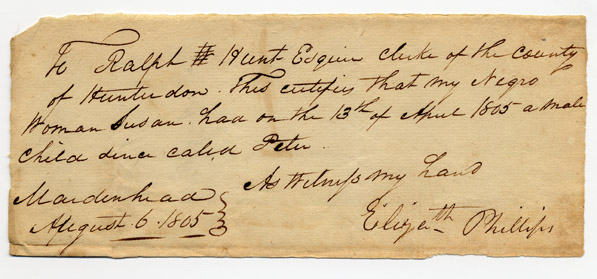 To Ralph H Hunt Esquir clerke of the county
of Hunterdon. This certifies that my Negro
Woman Susan. had on the 13th of April 1805 a male
child since caled Peter.
As Witness my hand
Maidenhead
August 6. 1805
Elizath Phillips